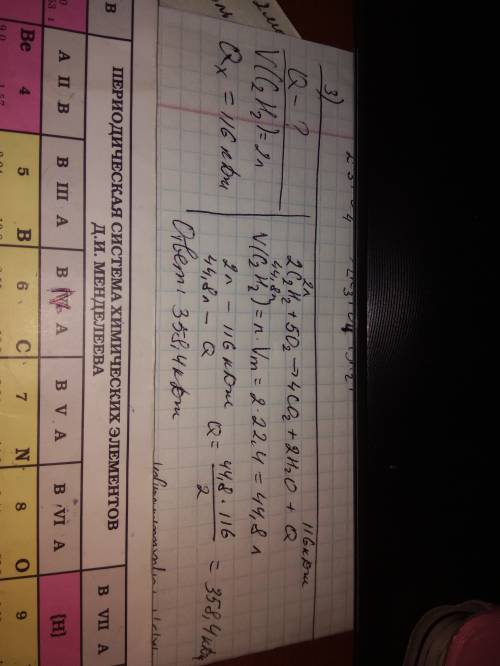 3)
Q - ?
V(C₂H₂)=2л
Qx = 116 кдж
2л 116 кдж
2C₂H₂ + 5O₂ → 4CO₂ + 2H₂O + Q
44,8л
V(C₂H₂) = n · Vm = 2 · 22,4 = 44,8 л
2л – 116 кдж
44,8л – Q Q = 44,8 · 116 / 2 = 358,4 кдж
Ответ: 358,4 кдж
ПЕРИОДИЧЕСКАЯ СИСТЕМА ХИМИЧЕСКИХ ЭЛЕМЕНТОВ
Д.И. МЕНДЕЛЕЕВА
В
А II В В III А В IV А В V А В VI А В VII А
Be 4 5 B 6 C 7 N 8 O 9
{H}